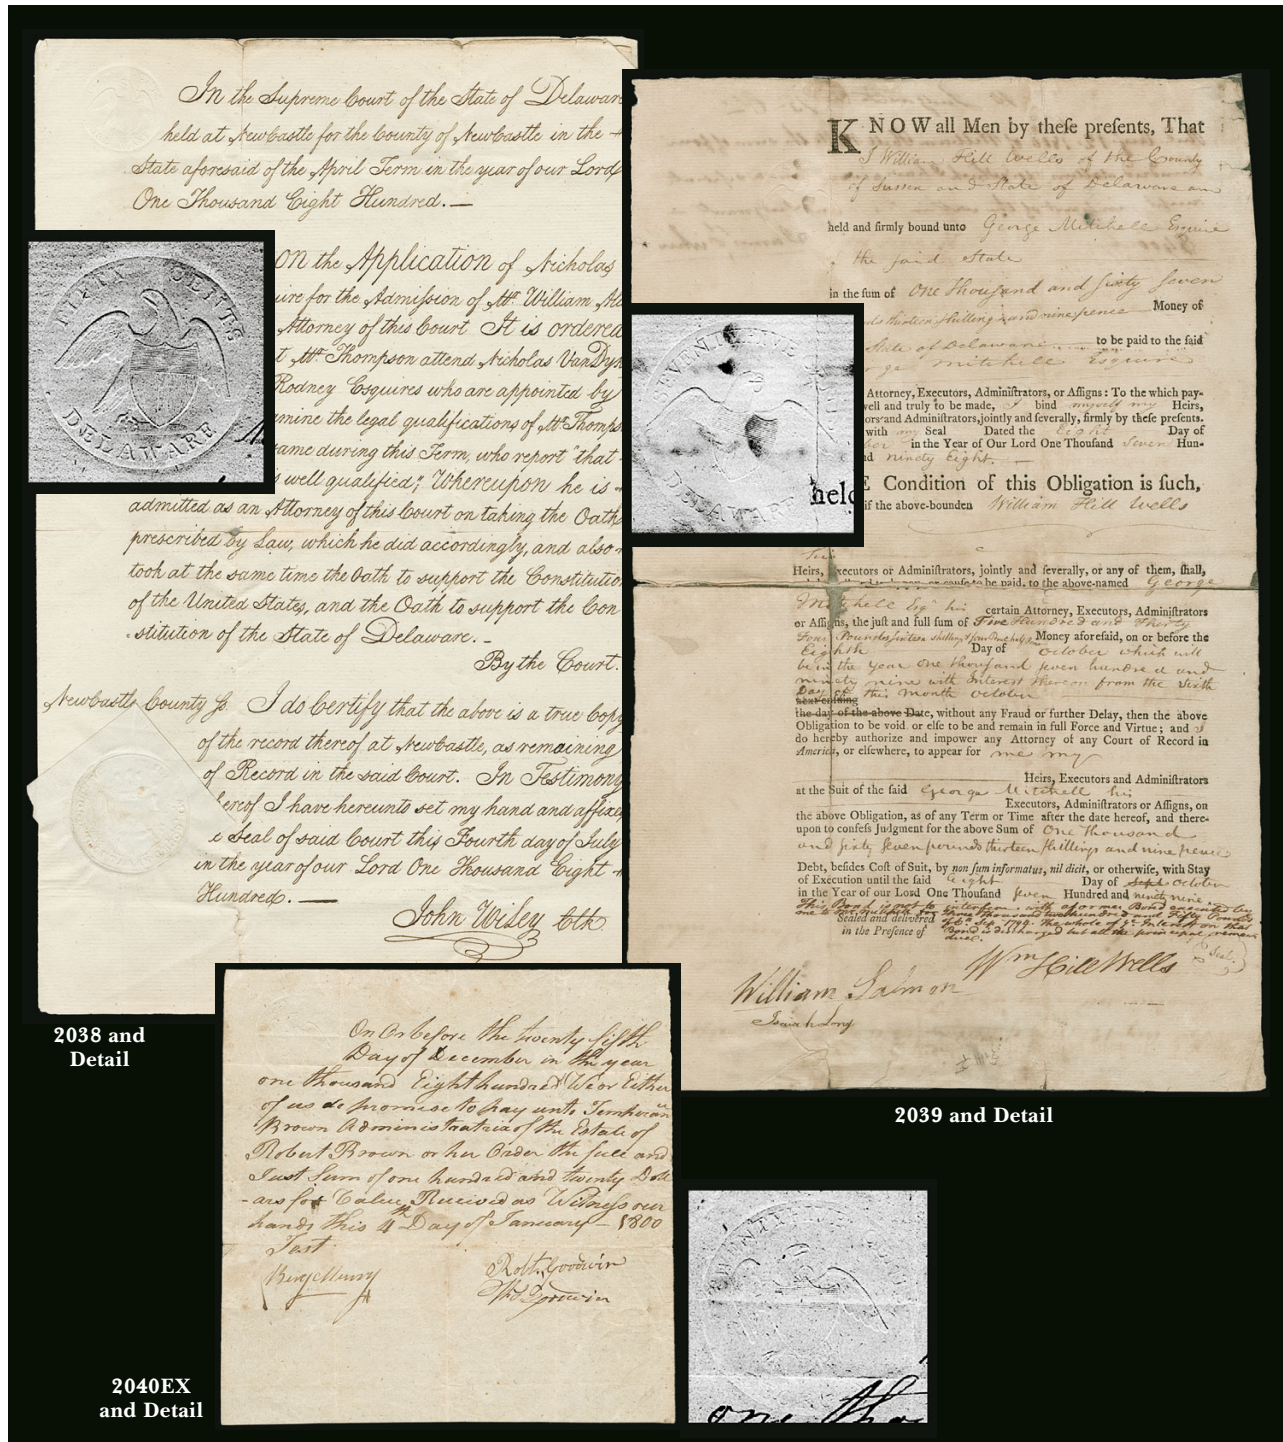 In the Supreme Court of the State of Delaware
held at NewCastle for the County of NewCastle in the
State aforesaid of the April Term in the year of our Lord
One Thousand Eight Hundred.—
ON the Application of Nicholas
ire for the Admission of Mr. William
Attorney of this Court It is ordered
t Mr. Thompson attend Nicholas VanDyk
Rodney Esquires who are appointed by
mine the legal qualifications of Mr. Thomps
ame during this Term, who report "that
s well qualified;" Whereupon he is
admitted as an Attorney of this Court on taking the Oath
prescribed by Law, which he did accordingly, and also
took at the same time the Oath to support the Constitutio
of the United States, and the Oath to support the Con
stitution of the State of Delaware.-
By the Court.
NewCastle County Ss. I do Certify that the above is a true Copy
of the record thereof at NewCastle, as remaining
of Record in the said Court. In Testimony
hereof I have hereunto set my hand and affixed
e Seal of said Court this Fourth day of July
in the year of our Lord One Thousand Eight
Hundred.—
John Wiley Clk
FIFTY CENTS
DELAWARE
2038 and
Detail
KNOW all Men by theſe preſents, That
I William Hill Wells of the County
of Sussex and State of Delaware am
held and firmly bound unto George Mitchell Esquire
the said State
in the ſum of One thousand and sixty seven
ds thirteen shillings and nine pence Money of
State of Delaware to be paid to the ſaid
rge Mitchell Esquire
Attorney, Executors, Adminiſtrators, or Aſſigns: To the which pay-
well and truly to be made, I bind myself my Heirs,
ors and Adminiſtrators, jointly and ſeverally, firmly by theſe preſents.
with my Seal Dated the Eight Day of
ber in the Year of Our Lord One Thouſand Seven Hun-
d ninety Eight.
E Condition of this Obligation is ſuch,
if the above-bounden William Hill Wells
his
Heirs, Executors or Adminiſtrators, jointly and ſeverally, or any of them, ſhall,
or cauſe to be paid, to the above-named George
Mitchell Esqr his certain Attorney, Executors, Adminiſtrators
or Aſſigns, the juſt and full ſum of Five Hundred and thirty
Four Pounds sixteen shillings & four Pence half Money aforeſaid, on or before the
Eighth Day of October which will
be in the year one thousand seven hundred and
ninety nine with Interest thereon from the Sixth
Day of this month October
next enſuing
the day of the above Date, without any Fraud or further Delay, then the above
Obligation to be void or elſe to be and remain in full Force and Virtue; and I
do hereby authorize and impower any Attorney of any Court of Record in
America, or elſewhere, to appear for me my
Heirs, Executors and Adminiſtrators
at the Suit of the ſaid George Mitchell his
Executors, Adminiſtrators or Aſſigns, on
the above Obligation, as of any Term or Time after the date hereof, and there-
upon to confeſs Judgment for the above Sum of One thousand
and sixty seven pounds thirteen shillings and nine pence
Debt, beſides Coſt of Suit, by non ſum informatus, nil dicit, or otherwiſe, with Stay
of Execution until the ſaid Eight Day of Sept October
in the Year of our Lord One Thouſand Seven Hundred and ninety nine.
This Bond is not to interfere with a former Bond executed by
me to Mr. Mitchell for three thousand two hundred and Fifty Pounds
Sealed and delivered of 6th Sep 1794. The whole of ye Interest on that
in the Preſence of Bond is discharged but all the principal remains
due.
Wm Hill Wells
Seal.
William Salmon
Isaiah Long
SEVENTY FIVE
DELAWARE
held
2039 and Detail
On Or before the twenty fifth
Day of December in the year
one thousand Eight hundred We or Either
of us do promise to pay unto
Brown Administratrix of the Estate of
Robert Brown or her Order the full and
Just Sum of one hundred and twenty Doll
-ars for Value Received as Witness our
hands this 4th Day of January — 1800
Test
Robt. Goodwin
Thos Goodwin
one tho
2040EX
and Detail